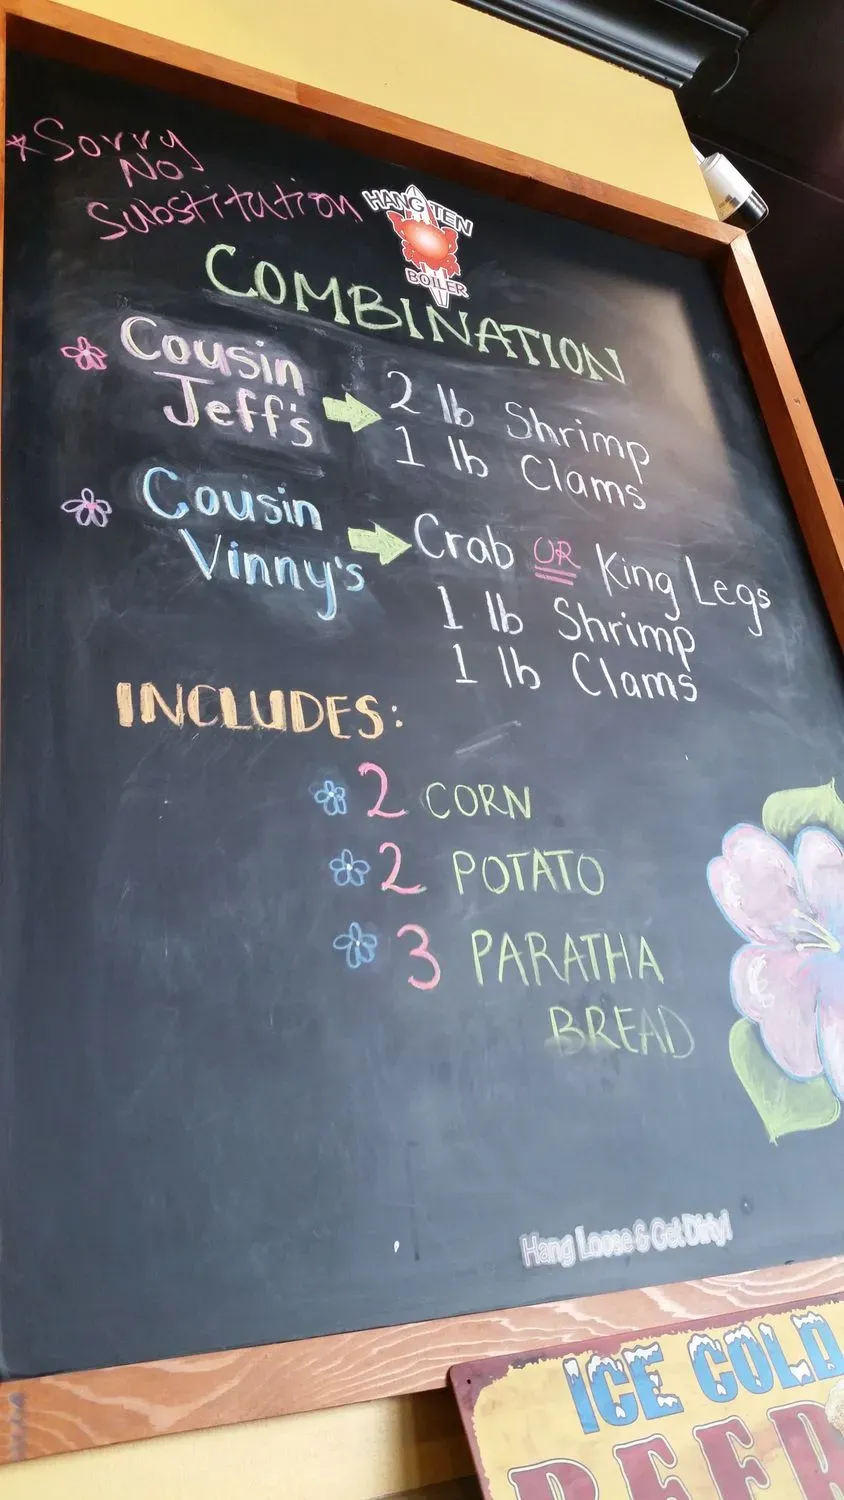 *Sorry
No
Substitution
HANG TEN
BOILER
COMBINATION
Cousin
Jeff's
2 lb Shrimp
1 lb Clams
Cousin
Vinny's
Crab OR King Legs
1 lb Shrimp
1 lb Clams
INCLUDES:
2 CORN
2 POTATO
3 PARATHA
BREAD
Hang Loose & Get Dirty!
ICE COLD
BEER